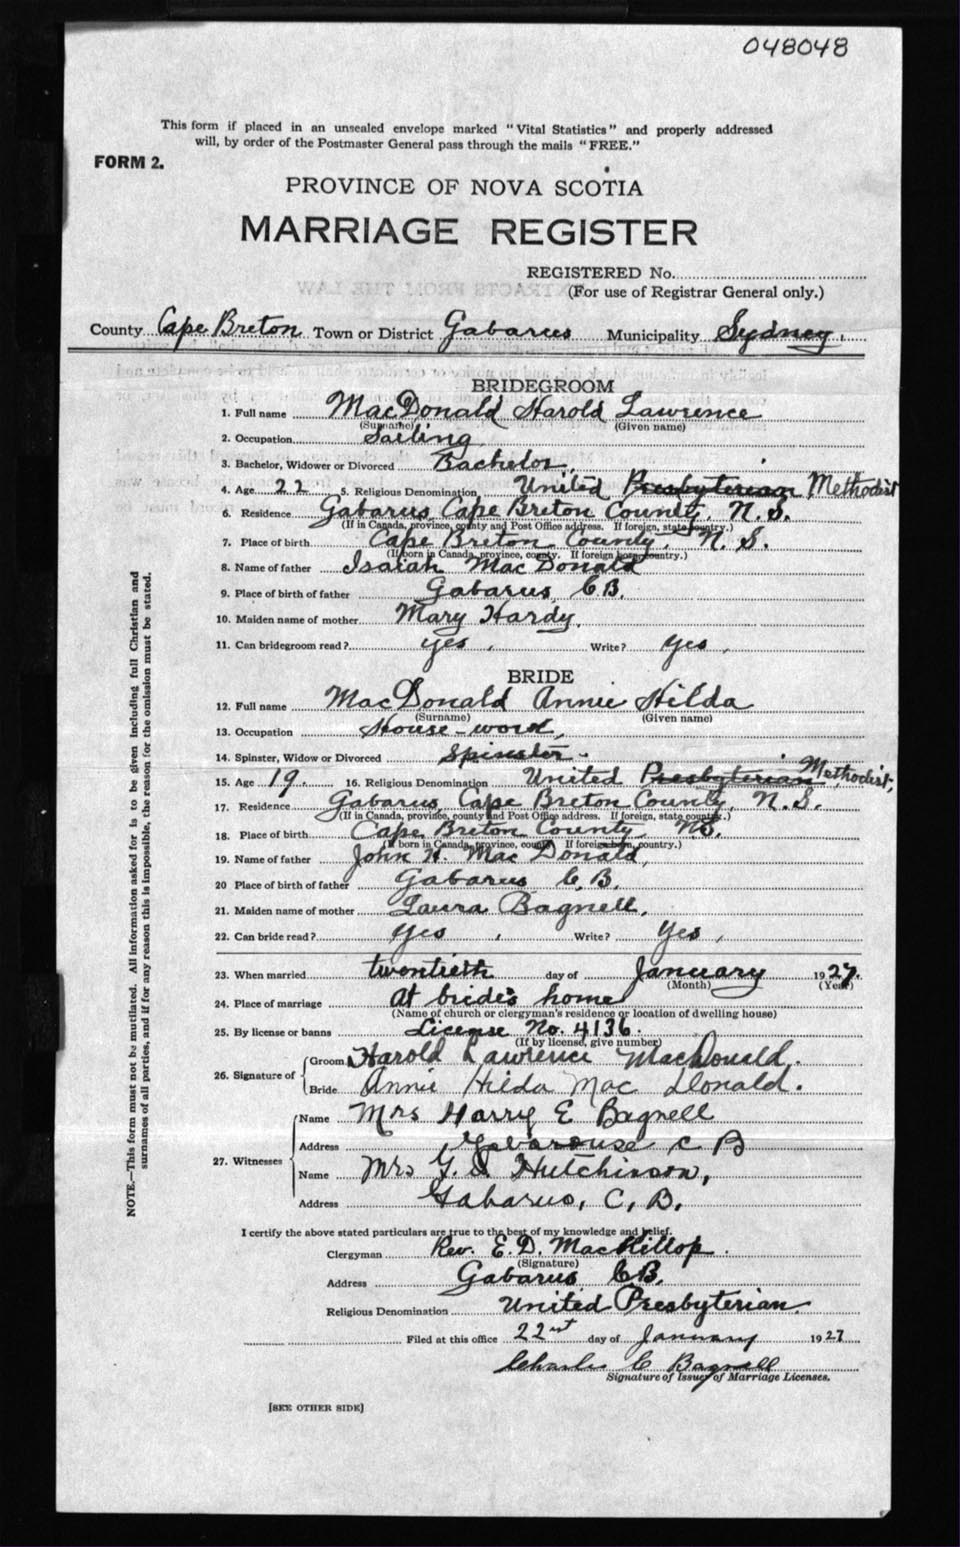 048048
This form if placed in an unsealed envelope marked "Vital Statistics" and properly addressed
will, by order of the Postmaster General pass through the mails "FREE."
FORM 2.
PROVINCE OF NOVA SCOTIA
MARRIAGE REGISTER
REGISTERED No.
(For use of Registrar General only.)
County Cape Breton Town or District Gabarus Municipality Sydney.
BRIDEGROOM
1. Full name MacDonald Harold Lawrence
(Surname) (Given name)
2. Occupation Sailing
3. Bachelor, Widower or Divorced Bachelor,
4. Age 22 5. Religious Denomination United Presbyterian Methodist
6. Residence Gabarus, Cape Breton County, N.S.
(If in Canada, province, county and Post Office address. If foreign, state country.)
7. Place of birth Cape Breton County, N.S.
(If born in Canada, province, county. If foreign born, country.)
8. Name of father Isaiah MacDonald
9. Place of birth of father Gabarus, C.B.
10. Maiden name of mother Mary Hardy.
11. Can bridegroom read? yes. Write? yes.
BRIDE
12. Full name MacDonald Annie Hilda
(Surname) (Given name)
13. Occupation House-work,
14. Spinster, Widow or Divorced Spinster.
15. Age 19. 16. Religious Denomination United Presbyterian, Methodist,
17. Residence Gabarus, Cape Breton County, N.S.
(If in Canada, province, county and Post Office address. If foreign, state country.)
18. Place of birth Cape Breton County, N.S.
(If born in Canada, province, county. If foreign born, country.)
19. Name of father John H. MacDonald,
20 Place of birth of father Gabarus, C.B.
21. Maiden name of mother Laura Bagnell,
22. Can bride read? yes, Write? yes,
23. When married twentieth day of January 1927.
(Month) (Year)
24. Place of marriage At bride's home
(Name of church or clergyman's residence or location of dwelling house)
25. By license or banns License No. 4136.
(If by license, give number)
26. Signature of Groom Harold Lawrence MacDonald.
Bride Annie Hilda MacDonald.
27. Witnesses Name Mrs Harry E Bagnell
Address Gabarouse C B
Name Mrs Hutchinson,
Address Gabarus, C, B.
I certify the above stated particulars are true to the best of my knowledge and belief.
Clergyman Rev. E.D. MacKillop.
(Signature)
Address Gabarus C.B.
Religious Denomination United Presbyterian.
Filed at this office 22nd day of January 1927
Charles C Bagnell
Signature of Issuer of Marriage Licenses.
[SEE OTHER SIDE]
NOTE.—This form must not be mutilated. All information asked for is to be given including full Christian and
surnames of all parties, and if for any reason this is impossible, the reason for the omission must be stated.